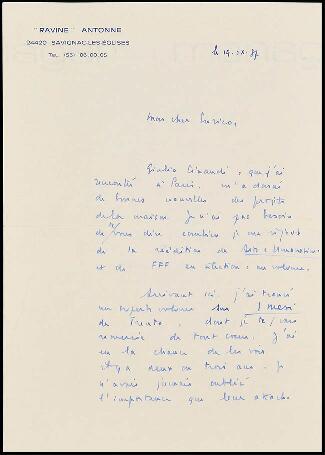 "RAVINE" ANTONNE
24420 SAVIGNAC-LES-ÉGLISES
TEL. (53) 06.00.05
le 19. IX. 87
Mon cher Enrico,
Giulio Einaudi, que j'ai
rencontré à Paris, m'a donné
de bonnes nouvelles des projets
de la maison. Je n'ai pas besoin
de vous dire combien je me réjouis
de la réédition de
et de FFF en volume.
Arrivant ici, j'ai trouvé
un superbe volume sur I mesi
de Trento, dont je te/vous
remercie de tout cœur. J'ai
eu la chance de les voir
il y a deux ou trois ans. Je
n'avais jamais oublié
l'importance que leur